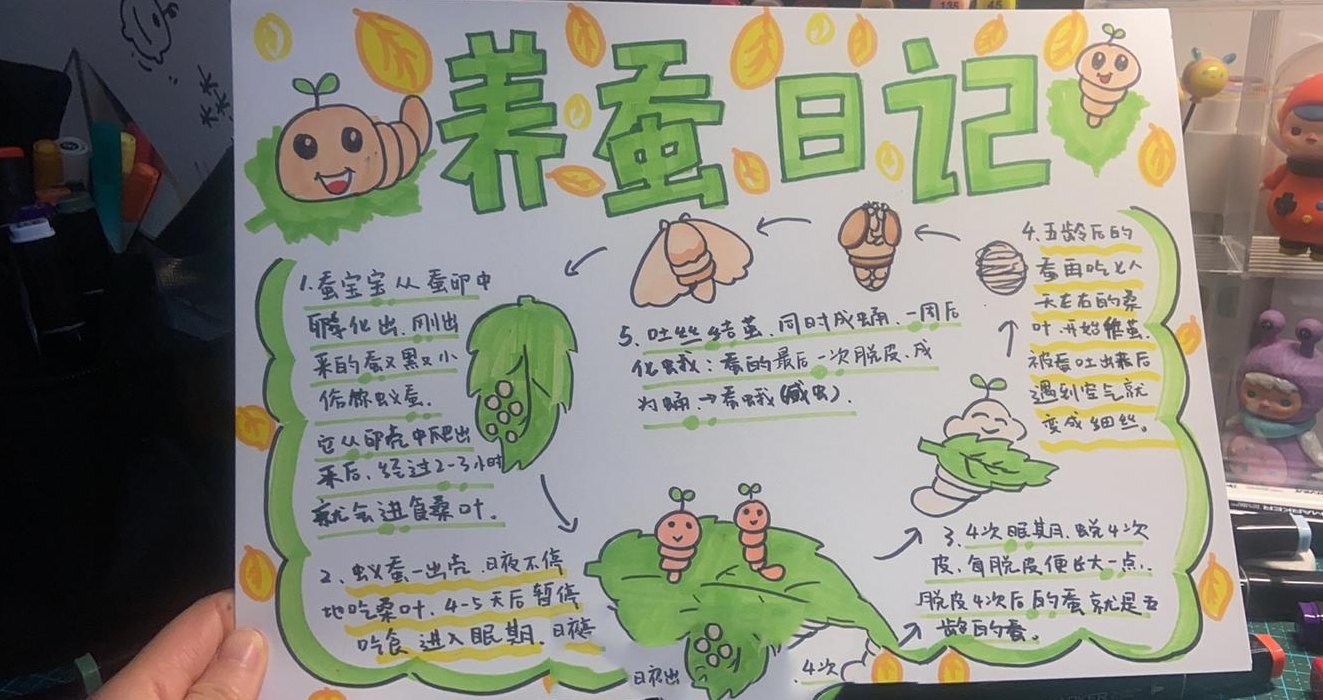 养蚕日记
1.蚕宝宝从蚕卵中
孵化出,刚出
来的蚕又黑又小
俗称蚁蚕.
它从卵壳中爬出
来后,经过2-3小时
就会进食桑叶.
2、蚁蚕一出壳,日夜不停
地吃桑叶,4-5天后暂停
吃食,进入眠期.
3、4次眠期,蜕4次
皮,每脱皮便长大一点,
脱皮4次后的蚕就是五
龄的蚕。
4.五龄后的
蚕再吃
天左右的桑
叶,开始作茧.
被蚕吐出来后
遇到空气就
变成细丝。
5、吐丝结茧,同时成蛹,一周后
化蛾:蚕的最后一次脱皮,成
为蛹→蚕蛾
4次
135
45
MARKER